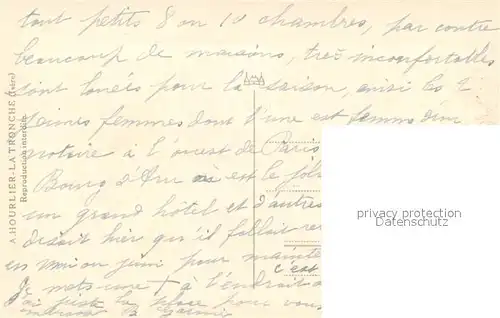 tout petits 8 ou 10 chambres, par contre
beaucoup de maisons, très inconfortables
sont louées pour la saison, ainsi les 2
jeunes femmes dont l'une est femme d'un
notaire à l'ouest de Paris
Bourg d'Oru où est le
un grand hôtel et d'autres
disait hier qu'il fallait
en mai ou juin pour
c'est
Je mets une + à l'endroit
j'ai juste la place pour vous
A. HOURLIER - LA TRONCHE (Isère)
Reproduction interdite
privacy protection
Datenschutz